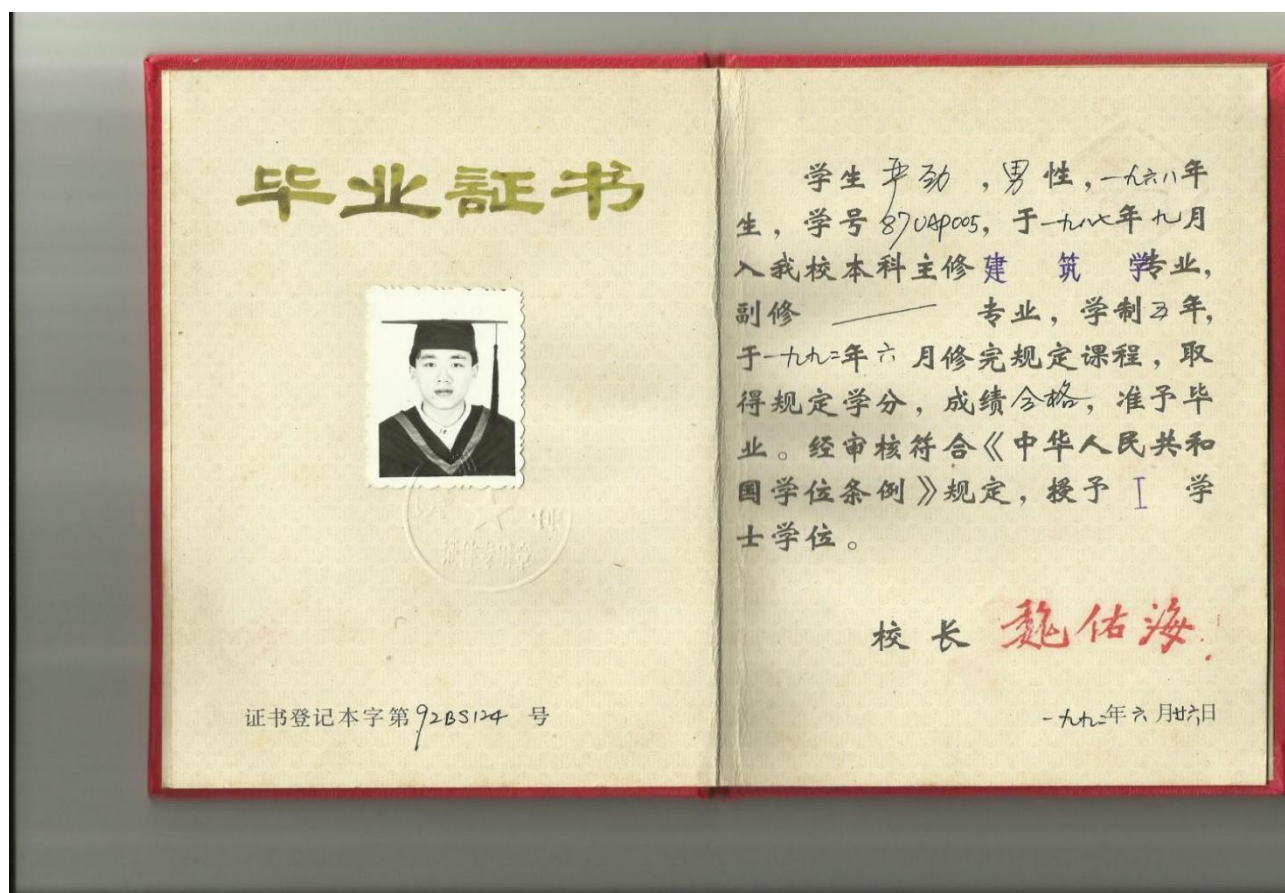 毕业証书
证书登记本字第92BS124 号
学生 严劲 ，男性，一九六八年
生，学号87UAP005，于一九八七年九月
入我校本科主修建 筑 学专业，
副修 —— 专业，学制五年，
于一九九二年六月修完规定课程，取
得规定学分，成绩合格，准予毕
业。经审核符合《中华人民共和
国学位条例》规定，授予 工 学
士学位。
校长 魏佑海
一九九二年六月廿六日